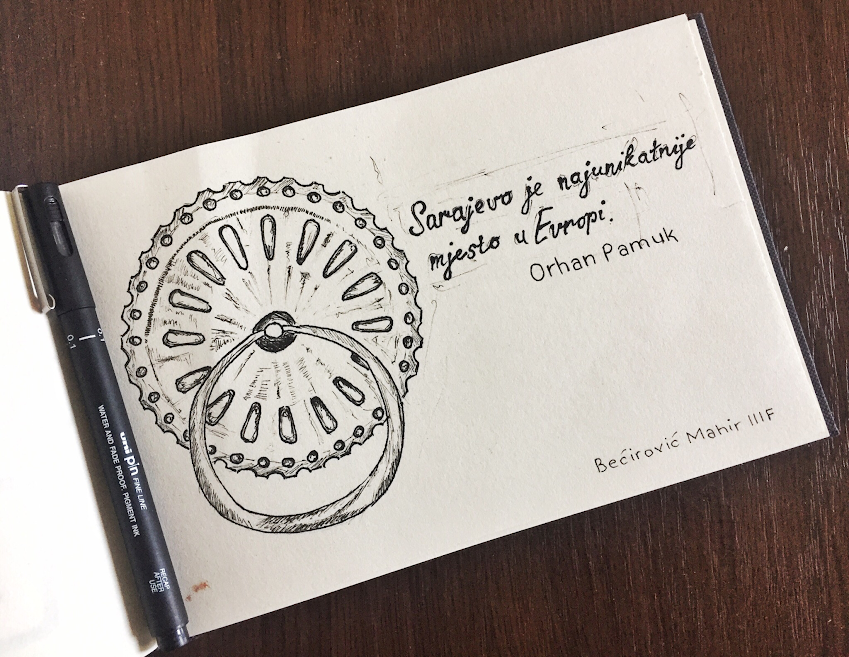 Sarajevo je najunikatnije
mjesto u Evropi.
Orhan Pamuk
Bećirović Mahir IIIF
0.1
0.1
uni pin FINE LINE
WATER AND FADE PROOF, PIGMENT INK
RECAP
AFTER
USE